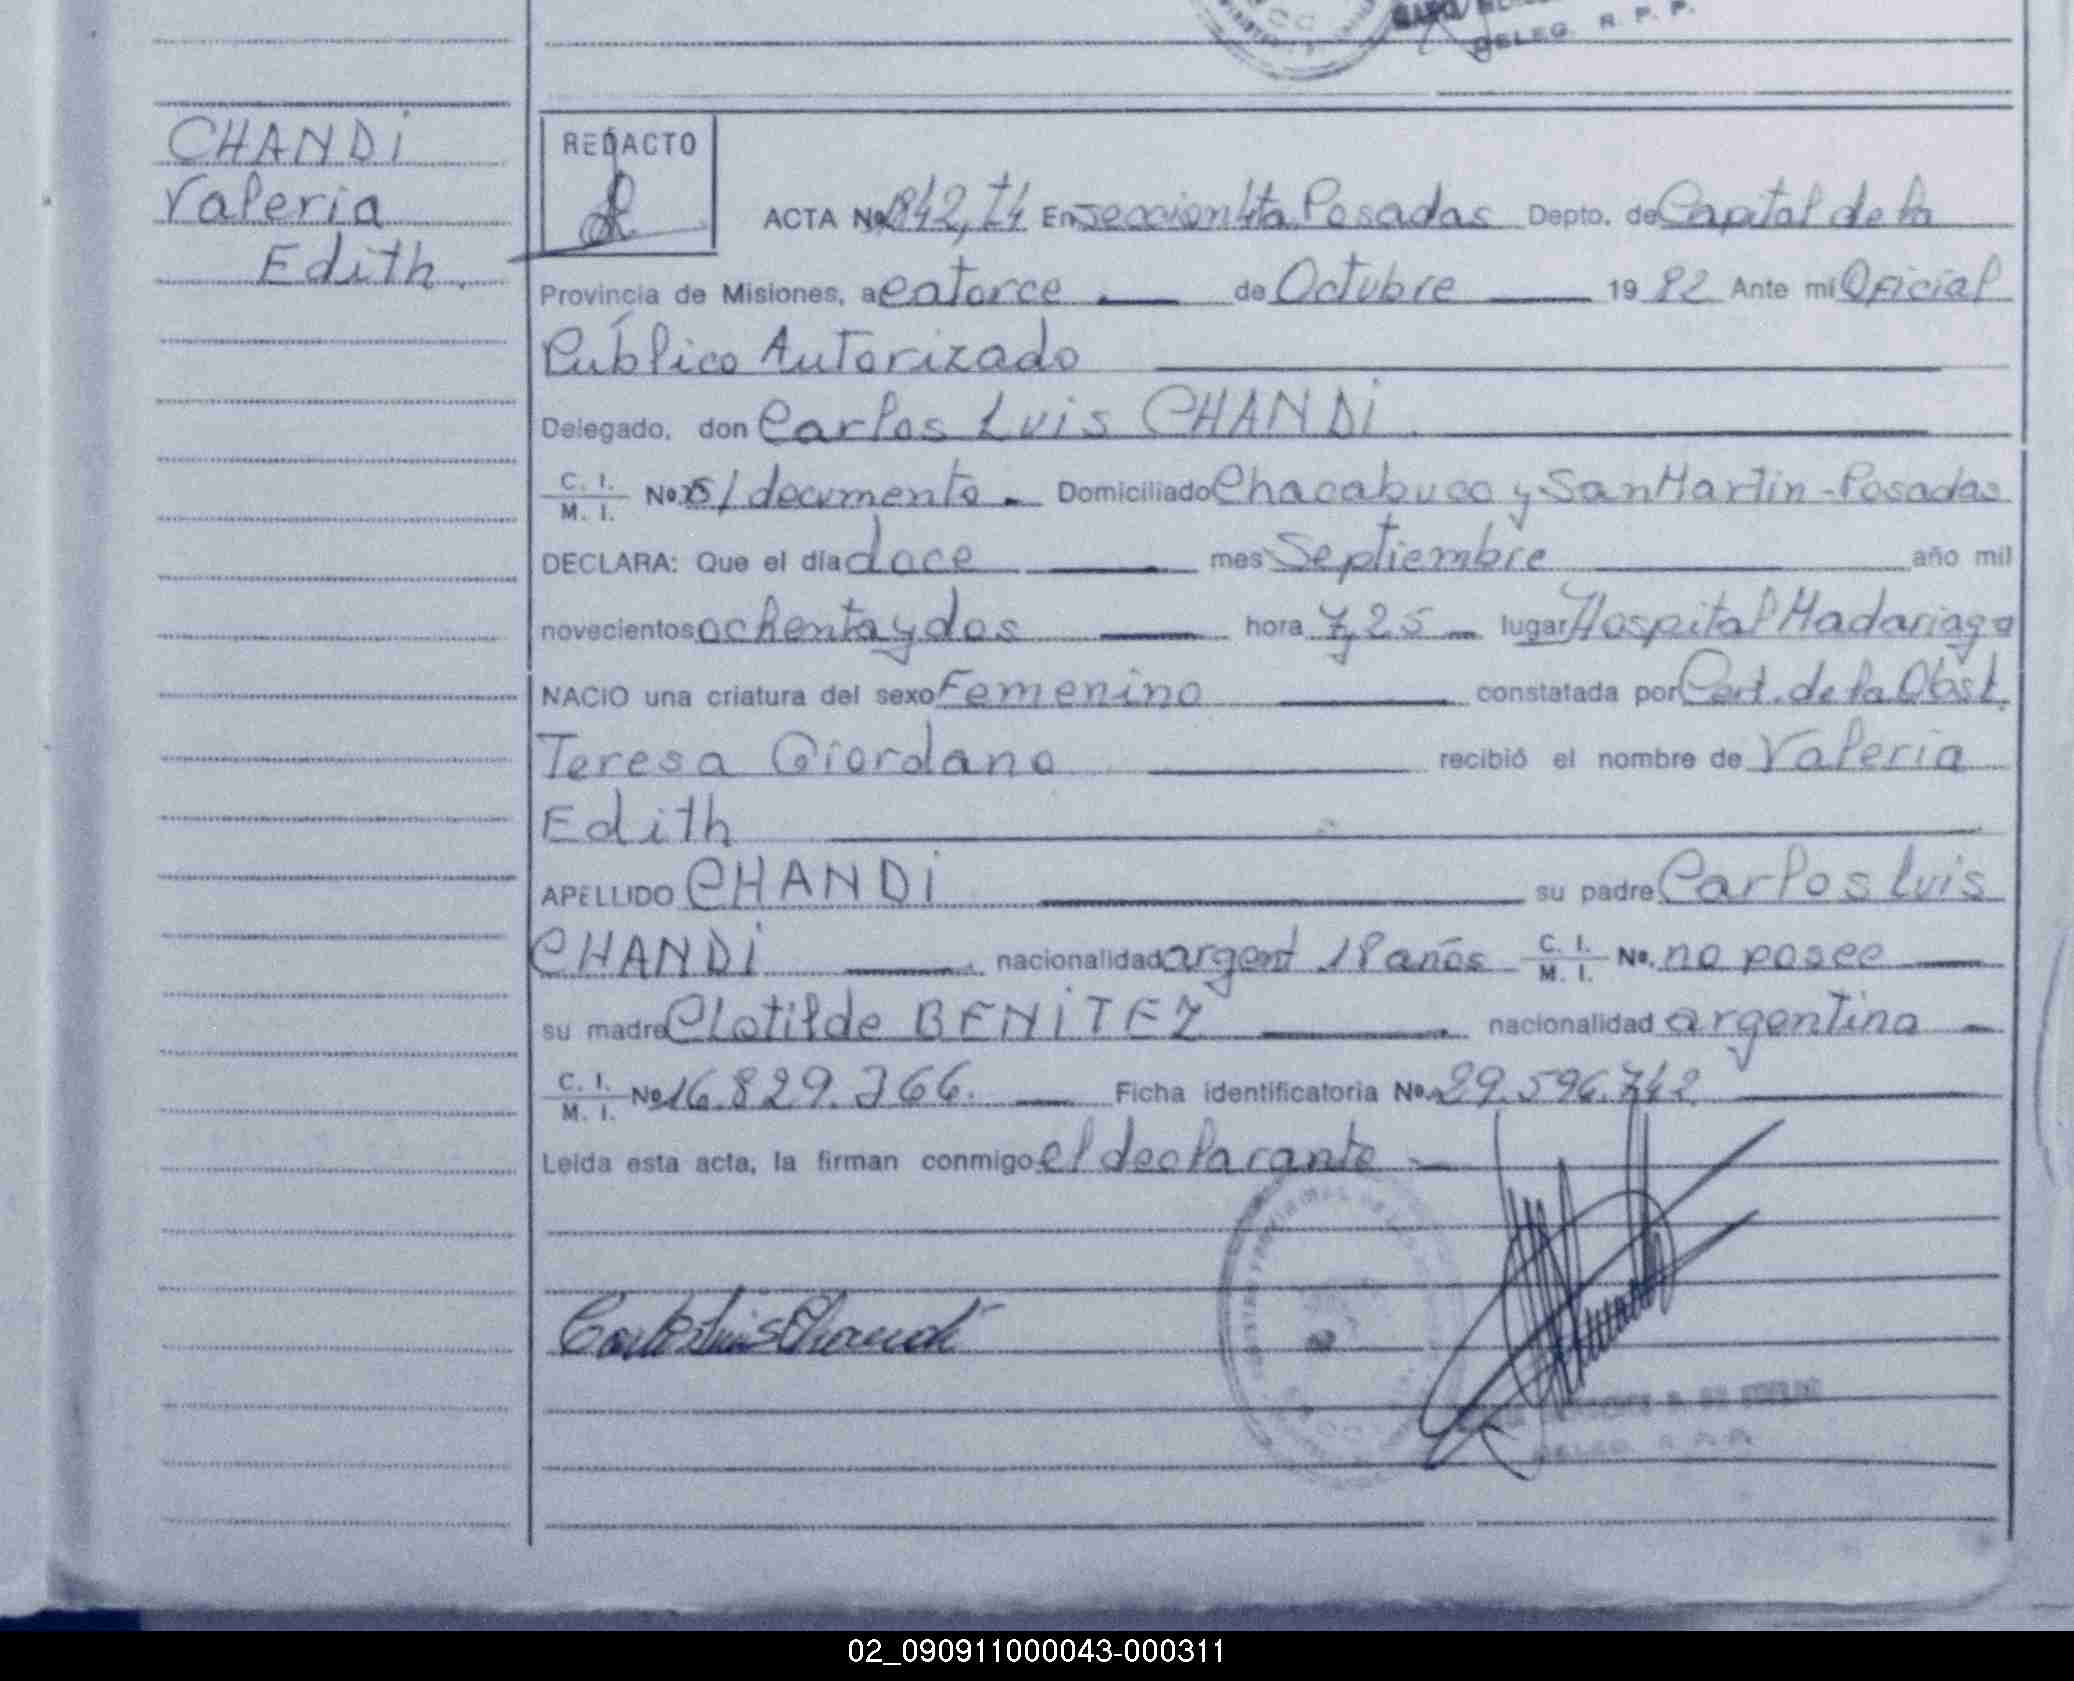 DELEG. R. P. P.
CHANDi
Valeria
Edith.
REDACTO
ACTA No 842, t4 En seccion 4ta Posadas Depto. de Capital de la
Provincia de Misiones, a catorce de Octubre 19 82 Ante mi Oficial
Público Autorizado
Delegado, don Carlos Luis CHANDi.
C. I.
M. I. No. s/documento. Domiciliado Chacabuco y San Martin - Posadas
DECLARA: Que el día doce mes Septiembre año mil
novecientos ochenta y dos hora 7,25 lugar Hospital Madariaga
NACIO una criatura del sexo Femenino constatada por Cert. de la Obst.
Teresa Giordano recibió el nombre de Valeria
Edith
APELLIDO CHANDi su padre Carlos Luis
CHANDi nacionalidad argent 18 años C. I. M. I. No. no posee
su madre Clotilde BENiTEZ nacionalidad argentina
C. I. M. I. No 16.829.366. Ficha identificatoria No. 29.596.742
Leída esta acta, la firman conmigo el declarante
Carlos Luis Chandi
DELEG. R. P. P.
02_090911000043-000311